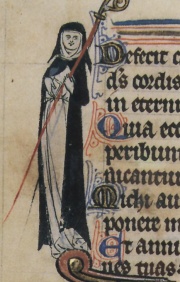 Defecit c
ds cordis
in etern
Quia ecc
peribun
nicantur
Michi au
ponere in
Et annu
nes tuas